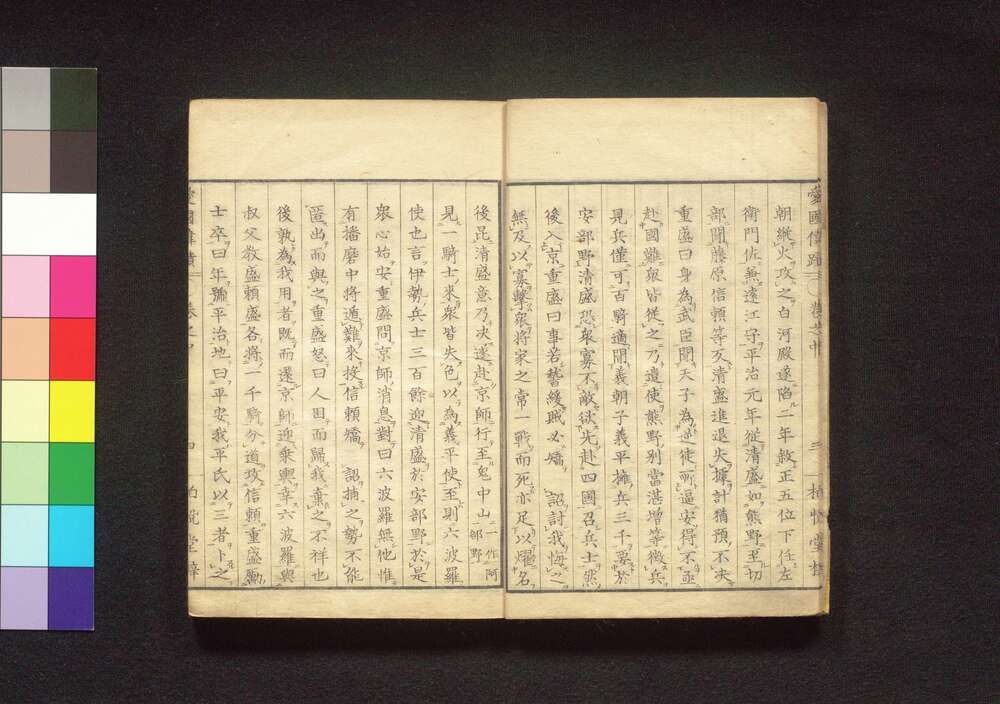 愛國偉蹟 卷之中 三
朝縱火攻之白河殿遂陷二年敘正五位下任左
衛門佐兼遠江守平治元年從清盛如熊野至切
部聞藤原信頼等反清盛進退失據計猜預不決
重盛曰身為武臣聞天子為逆徒所逼安得不亟
赴國難衆皆從之乃遣使熊野別當湛増等徴兵
見兵僅可百騎適聞義朝子義平擁兵三千要於
安部野清盛恐衆寡不敵欲先赴四國召兵士然
後入京重盛曰事若稽緩賊必矯 詔討我悔之
無及以寡撃衆將家之常一戰而死亦足以燿名
後昆清盛意乃決遂赴京師行至鬼中山一作阿部野
見一騎士來衆皆失色以為義平使至則六波羅
使也言伊勢兵士三百餘迎清盛於安部野於是
衆心始安重盛問京師消息對曰六波羅無他惟
有播磨中將遁難來投信頼矯 詔捕之勢不能
匿出而與之重盛怒曰人困而歸我棄之不祥也
後孰為我用者既而還京師迎乘輿幸六波羅與
叔父教盛頼盛各將一千騎分道攻信頼重盛勵
士卒曰年號平治地曰平安我平氏以三者卜之
愛國偉蹟 卷之中 四